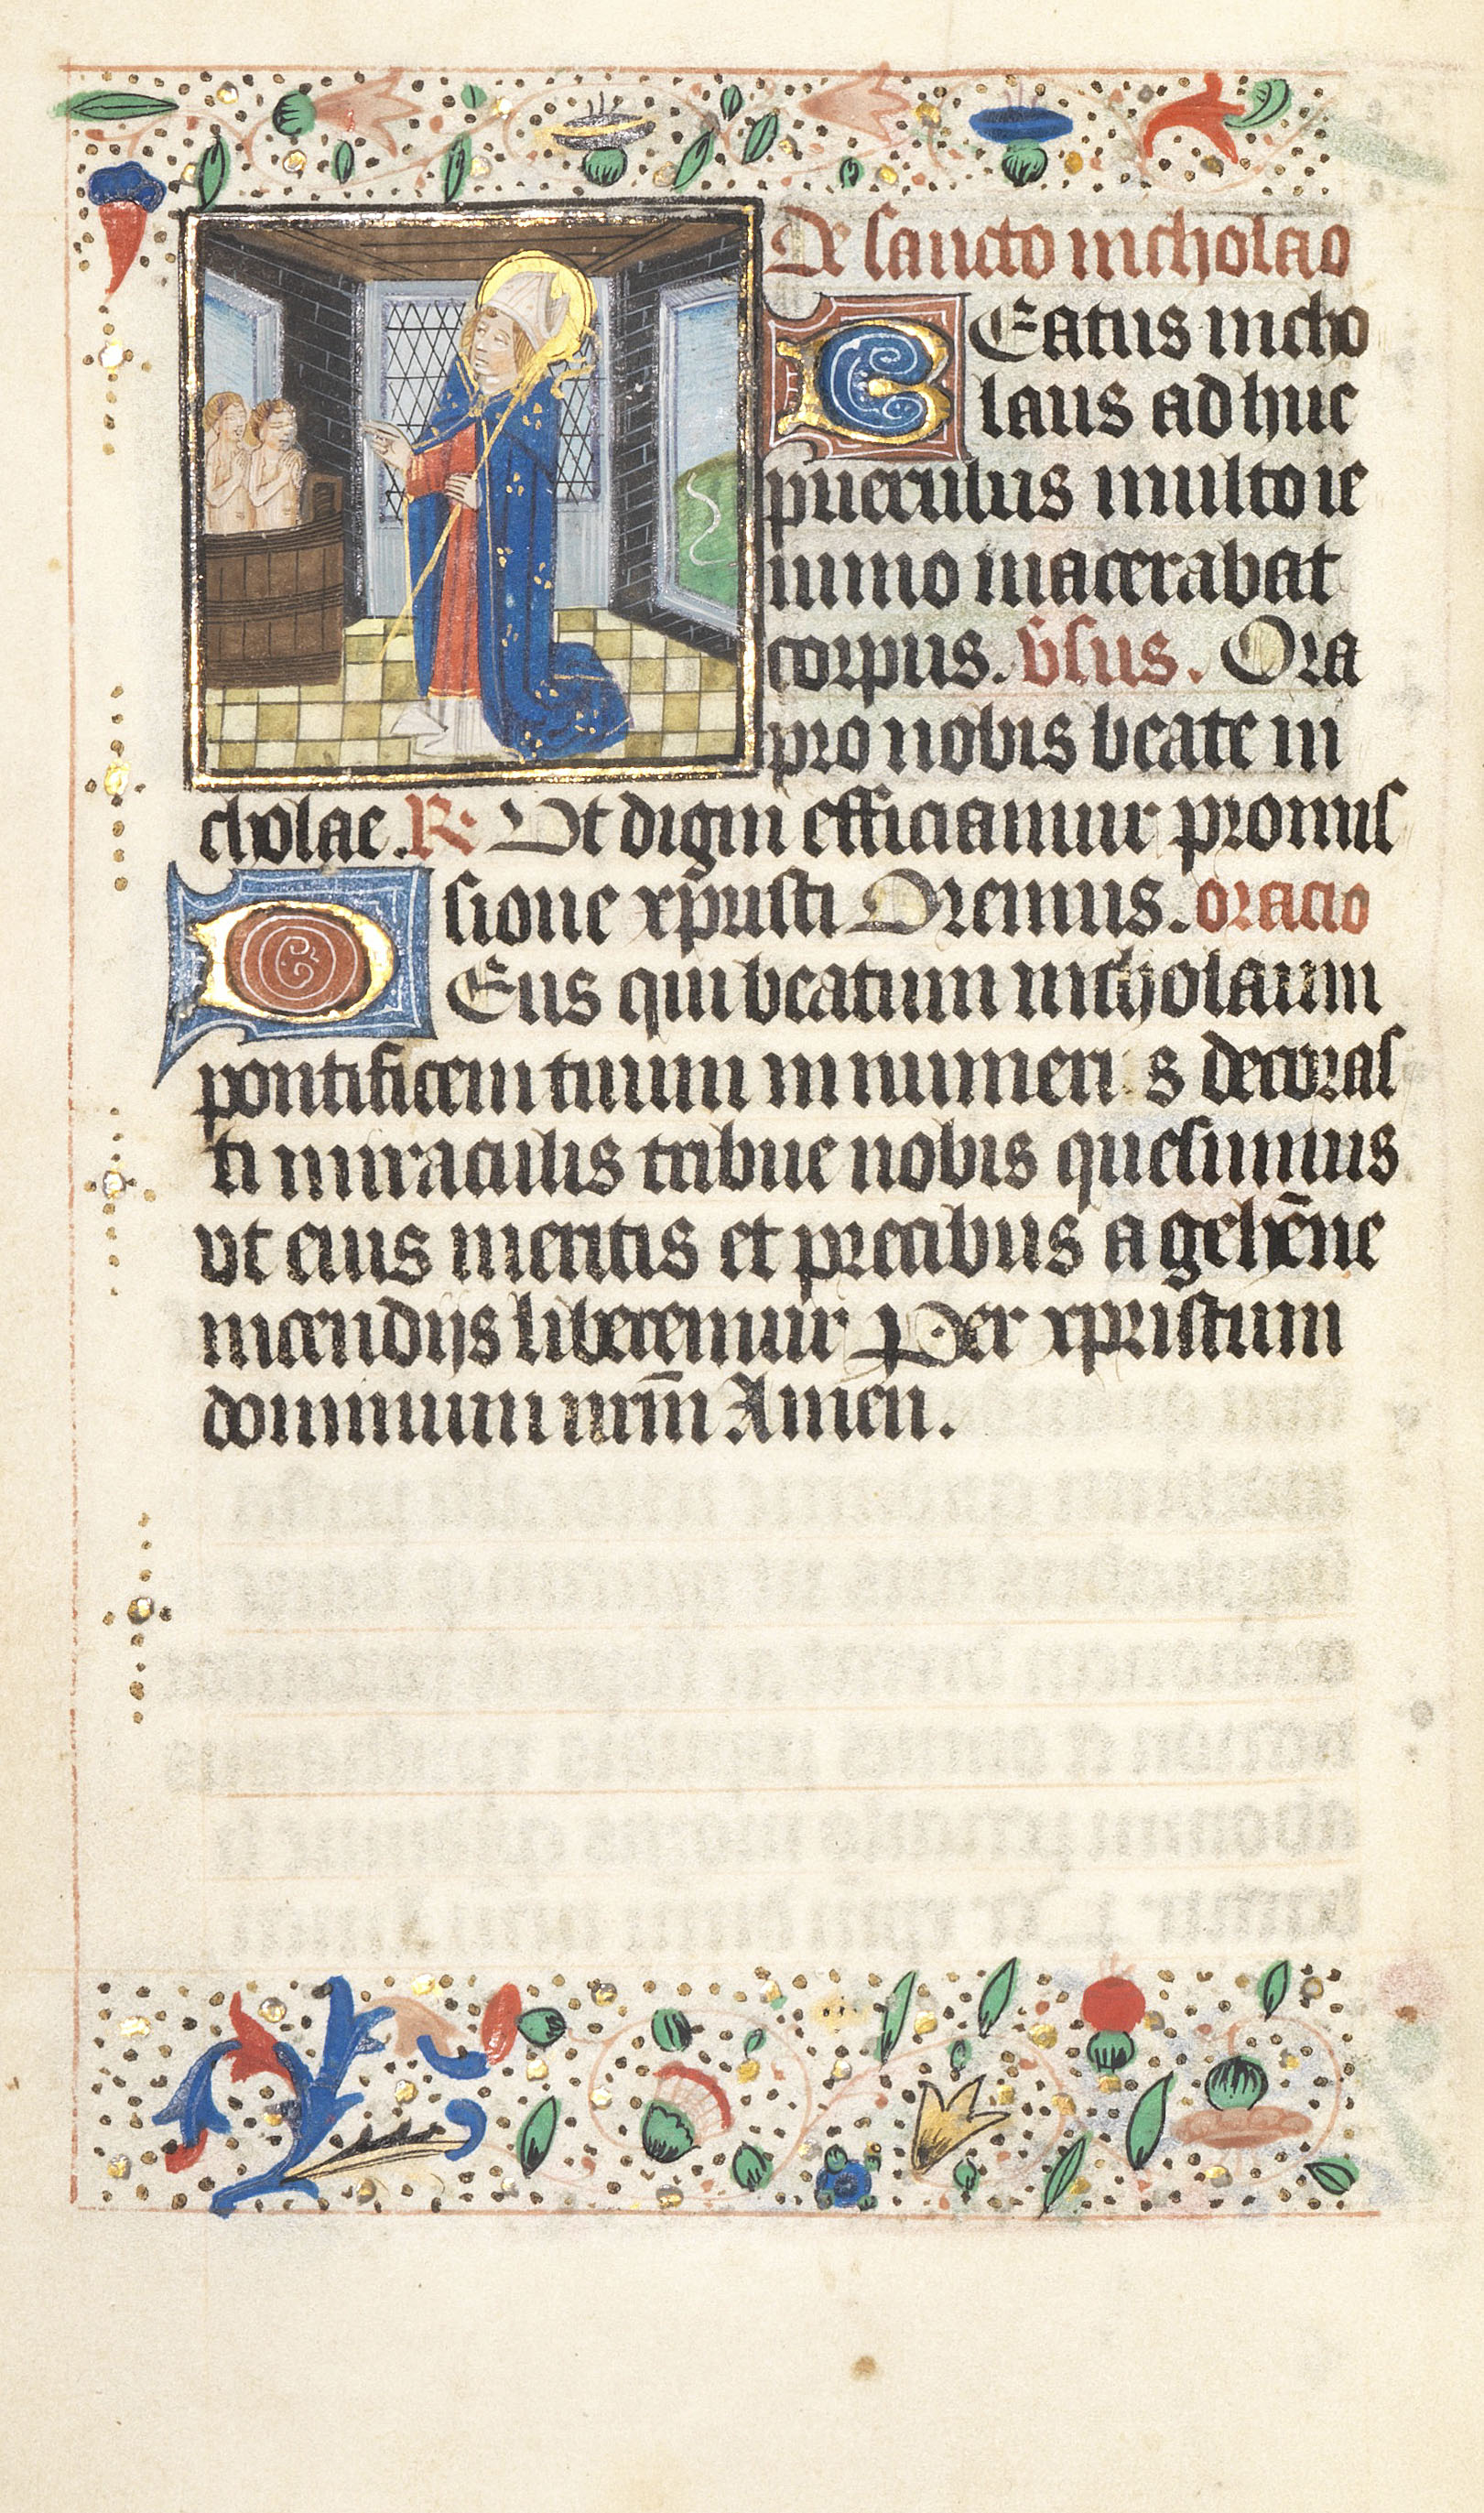 De sancto nicholao
BEatus nicho
laus adhuc
puerulus multo ie
iunio macerabat
corpus. v̄sus. Ora
pro nobis beate ni
cholae. R. Vt digni efficiamur promis
sione xpristi Oremus. oracio
DEus qui beatum nicholaum
pontificem tuum innumeri s decoras
ti miraculis tribue nobis quesumus
vt eius meritis et precibus a gehēne
incendijs liberemur Per xpristum
dominum nr̄m Amen.